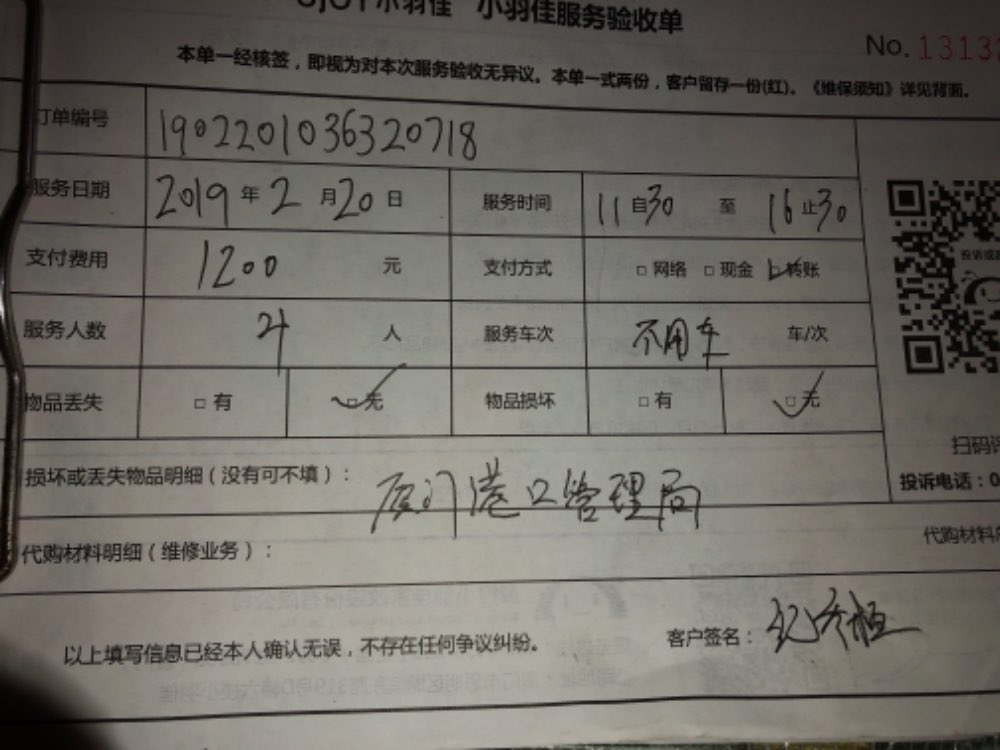 小羽佳 小羽佳服务验收单
No. 1313
本单一经核签，即视为对本次服务验收无异议。本单一式两份，客户留存一份(红)。《维保须知》详见背面。
订单编号 1902201036320718
服务日期 2019 年 2 月 20 日 服务时间 11 自 30 至 16 止 30
支付费用 1200 元 支付方式 □ 网络 □ 现金 ☑ 转账
服务人数 4 人 服务车次 不用车 车/次
物品丢失 □ 有 ☑ 无 物品损坏 □ 有 ☑ 无
扫码
损坏或丢失物品明细（没有可不填）： 厦门港口管理局
投诉电话：0
代购材料明细（维修业务）： 代购材料
以上填写信息已经本人确认无误，不存在任何争议纠纷。 客户签名：